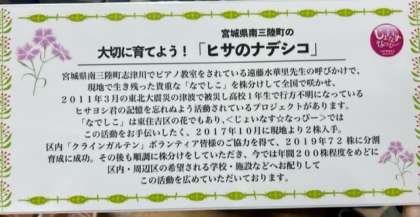 宮城県南三陸町の
大切に育てよう!「ヒサのナデシコ」
宮城県南三陸町志津川でピアノ教室をされている遠藤水華里先生の呼びかけで、
現地で生き残った貴重な「なでしこ」を株分けして全国で咲かせ、
2011年3月の東北大震災の津波で被災し高校1年生で行方不明になっている
ヒサヨシ君の記憶を忘れないよう活動されているプロジェクトがあります。
「なでしこ」は東住吉区の花でもあり、<じょいなす☆なっぴー>では
この活動をお手伝いしたく、2017年10月に現地より2株入手。
区内「クラインガルテン」ボランティア皆様のご協力を得て、2019年72株に分割
育成に成功。その後も順調に株分けをしていただき、今では年間200株程度をめどに
区内・周辺区の希望される学校・施設などへお配りして
この活動を広めていただいております。